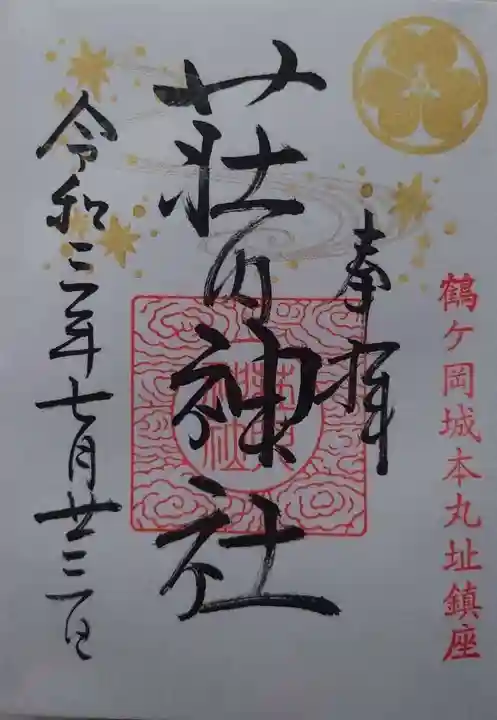 鶴ヶ岡城本丸址鎮座
奉拝
荘内神社
令和三年七月廿三日
荘内
神社